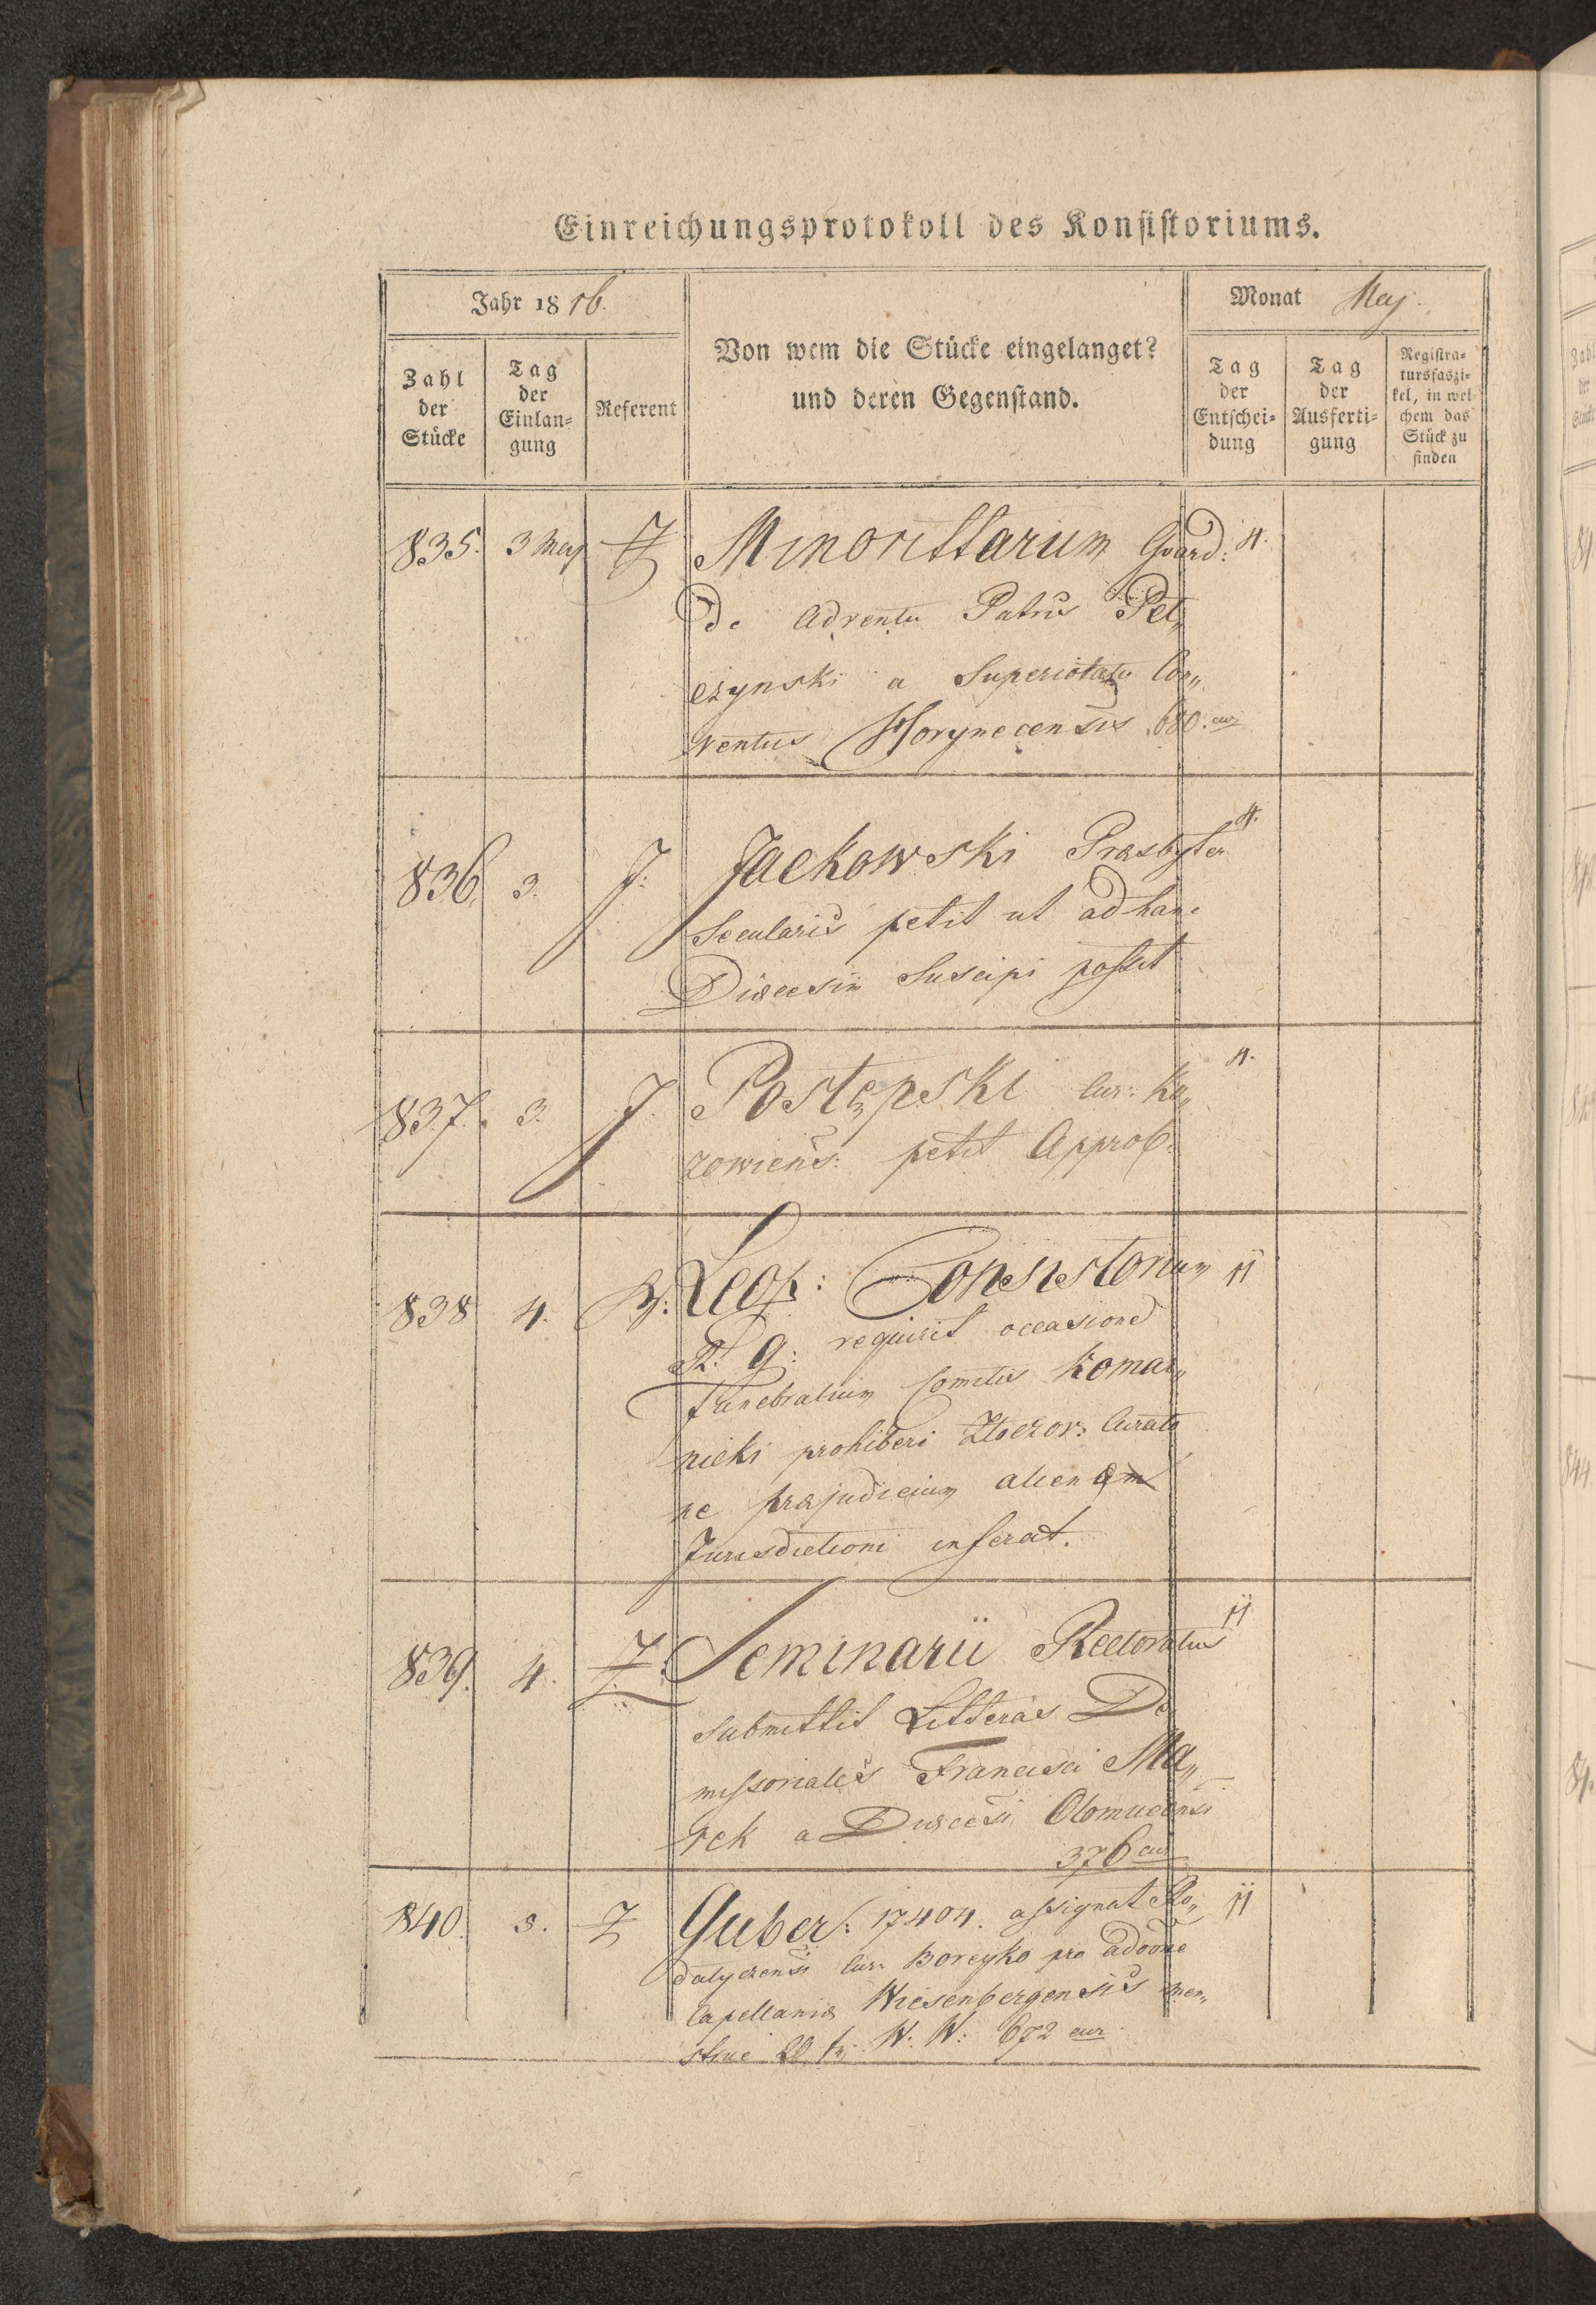 Einreichungsprotokoll des Konsistoriums.
Jahr 1816.
Monat May.
Von wem die Stücke eingelanget?
und deren Gegenstand.
Zahl der Stücke
Tag der Einlan=gung
Referent
Tag der Entschei=dung
Tag der Ausferti=gung
Registra=tursfaszi=kel, in wel=chem das Stück zu finden
835. 3 May Z Minorittarum Guard: 4.
De Adventu Patris Pel„
czynski a Superioratu Con„
ventus Horynecensis 680. cur
836. 3. J. Jackowski Presbyter 4.
Secularis petit ut ad hanc
Diœcesim Suscipi posset
837. 3. J. Postępski Cur: Ko„ 4.
zowiens: petit Approb:
838 4. Leop: Consistorium 11
R. g: requirit occasione
funebralium Comitis Komar„
nicki prohiberi Złoczov: Curato
ne præjudicium alien
Jurisdictioni inferat.
839. 4. Z. Seminarii Rectoratus 11
Submittit Litteras Di
missoriales Francisci Ma„
rek a Diœcesi Olomucensi
376 cur
840. 3. Z Guber: 17404. assignat Ro„ 11
datyczensi Cur: Boreyko pro
Capellaniæ Wiesenbergensis men„
strue 20 fr: W. W: 672 cur